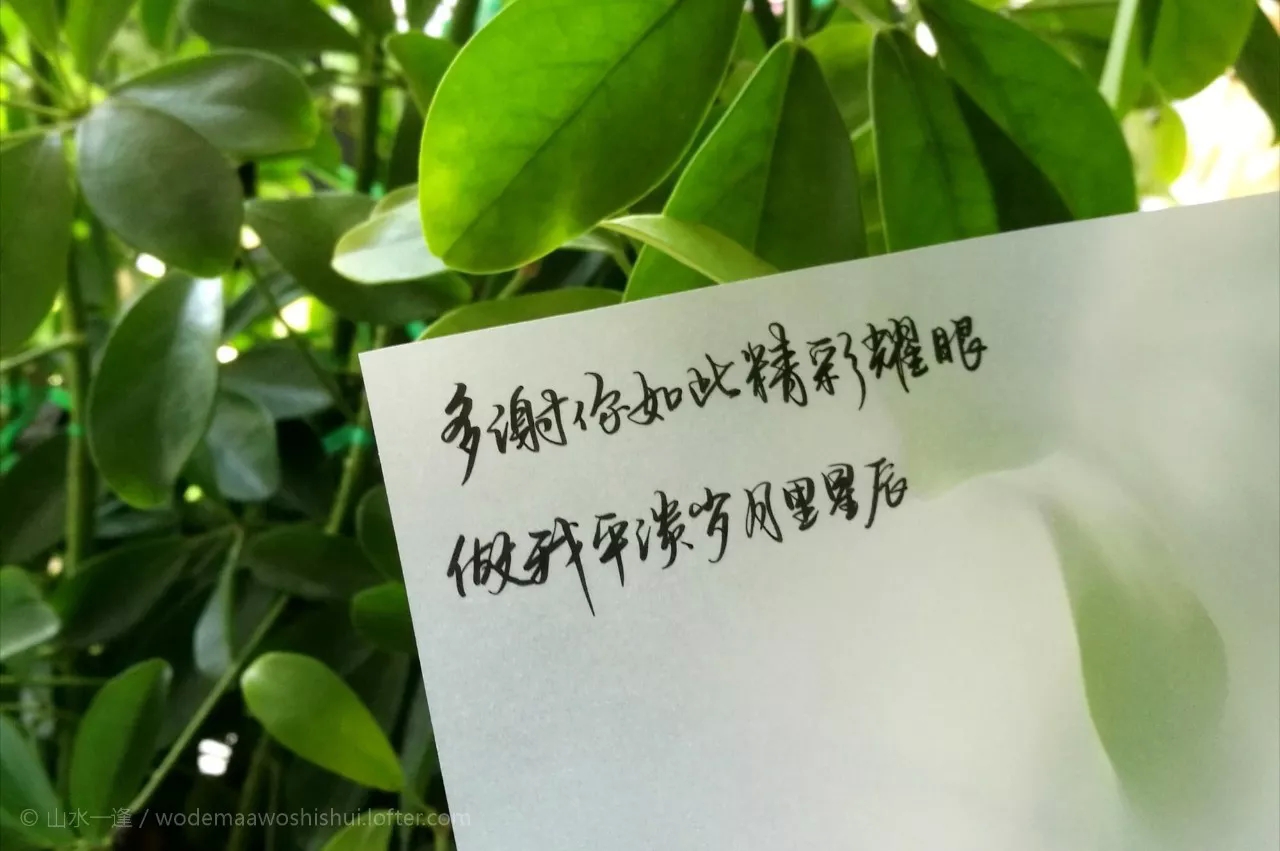 多谢你如此精彩耀眼
做我平淡岁月里星辰
© 山水一逢 / wodemaawoshishui.lofter.com